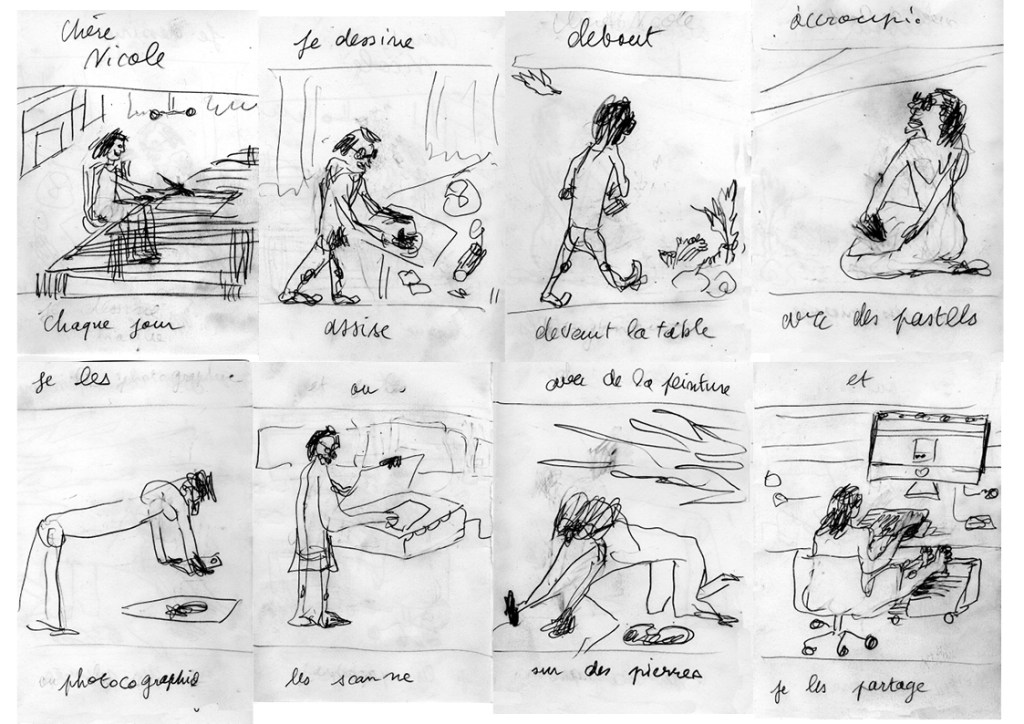 Chère
Nicole
chaque jour
je dessine
assise
debout
devant la table
accroupi.
avec des pastels
je les
photocographie
ou
les scanne
avec de la peinture
sur des pierres
et
je les partage